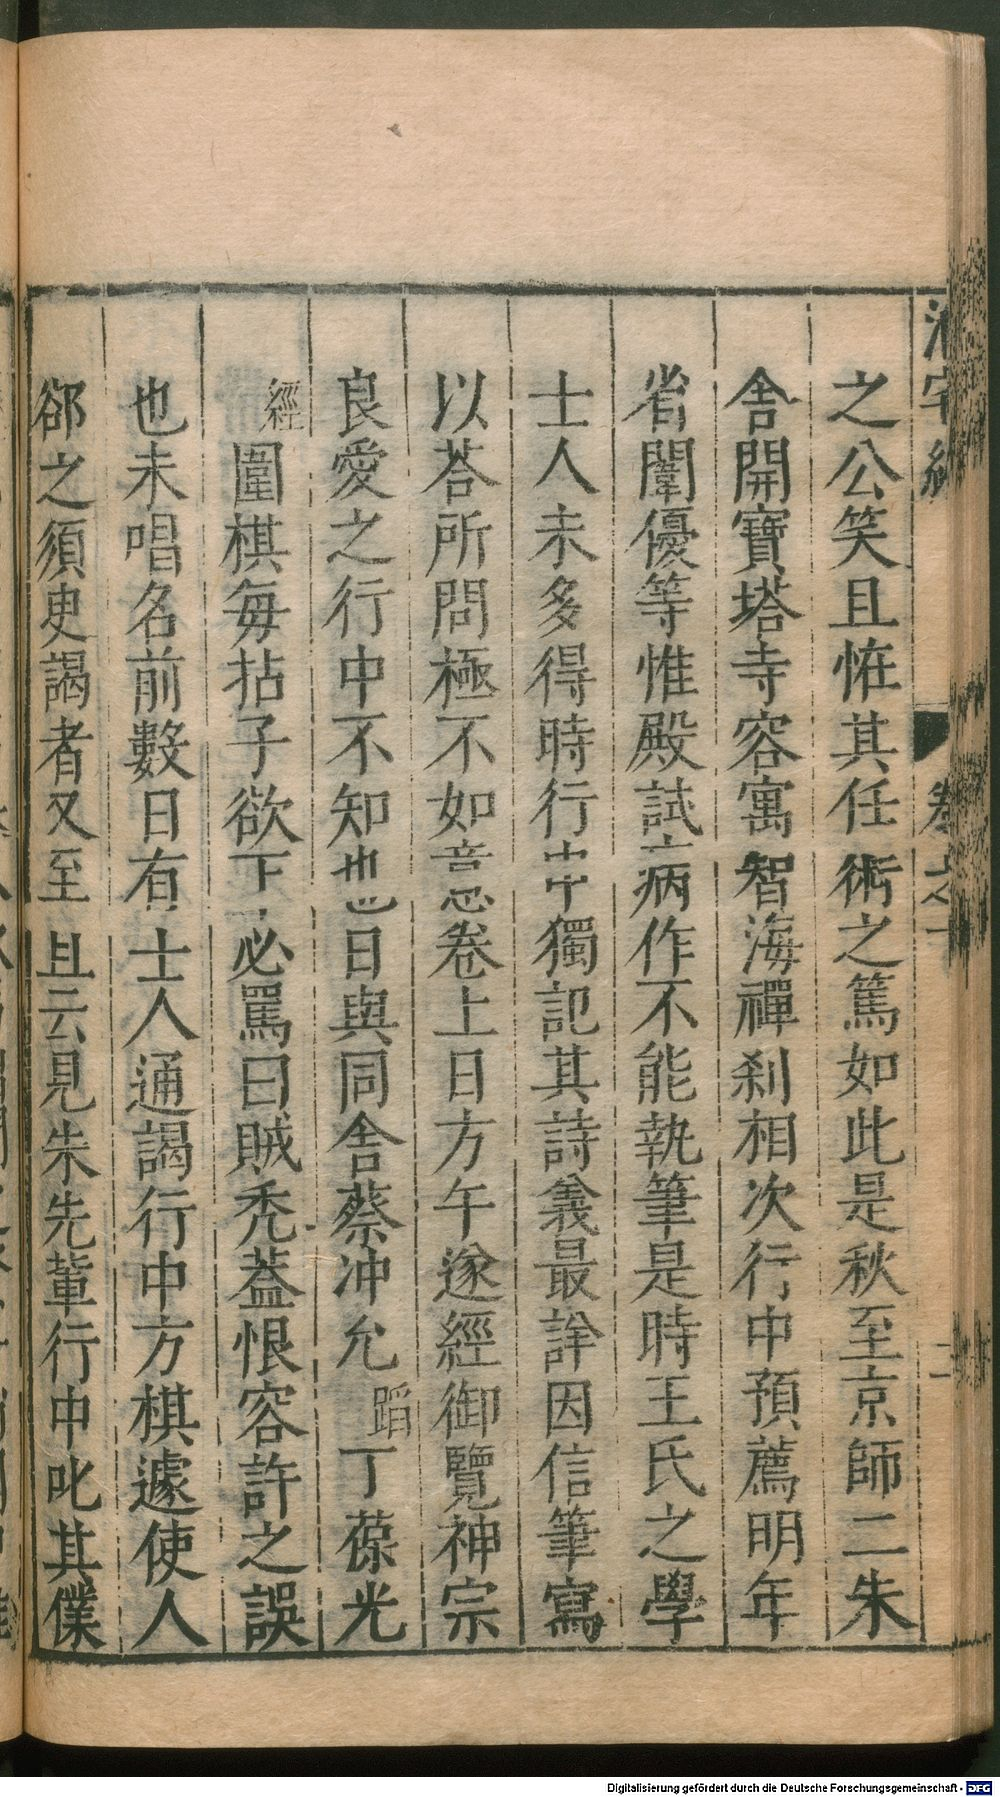 之公笑且恠其任術之篤如此是秋至京師二朱
舎開寶塔寺容寓智海禪刹相次行中預薦明年
省闈優等惟殿試病作不能執筆是時王氏之學
士人未多得時行中獨記其詩義最詳因信筆寫
以荅所問極不如意卷上日方午遂經御覽神宗
良愛之行中不知也日與同舎蔡冲允蹈丁葆光
經圍棋每拈子欲下必罵曰賊禿葢恨容許之誤
也未唱名前數日有士人通謁行中方棋遽使人
郤之須㬰謁者又至且云見朱先輩行中叱其僕
卷之十
二
Digitalisierung gefördert durch die Deutsche Forschungsgemeinschaft - DFG